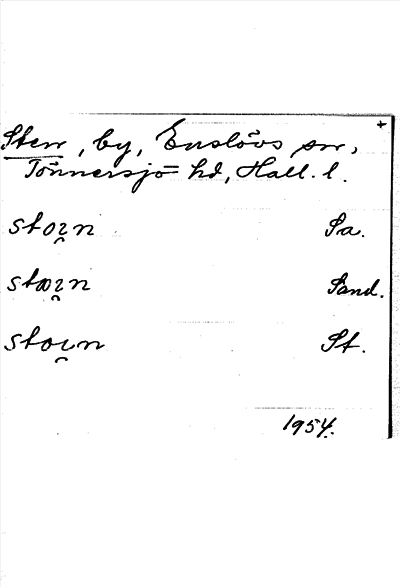 Sten, by, Enslövs sn,
Tönnersjö hd, Hall. l.
stoɪ̯n Sa.
stæɪ̯n Sand.
stoɪ̯n St.
1954.